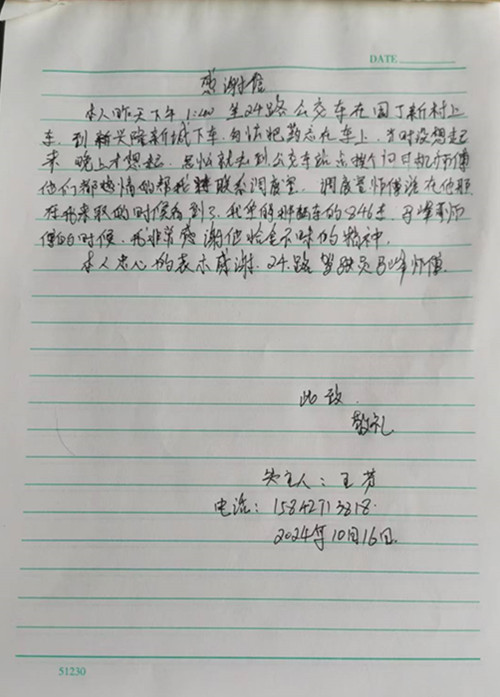 DATE
感谢信
本人昨天下午1:40坐24路公交车在园丁新村上
车,到新兴隆新城下车,匆忙把药忘在车上,当时没想起
来晚上才想起,急忙就去到公交车站点挨个问司机师傅
他们都热情的帮我联系调度室,调度室师傅说在他那
在我来取的时候看到了,我坐的那辆车的846车,马峰师
傅的时候,我非常感谢他拾金不昧的精神。
本人衷心的表示感谢24路驾驶员马峰师傅
此致
敬礼
失主人:王芳
电话:15842713818.
2024年10月16日.
51230